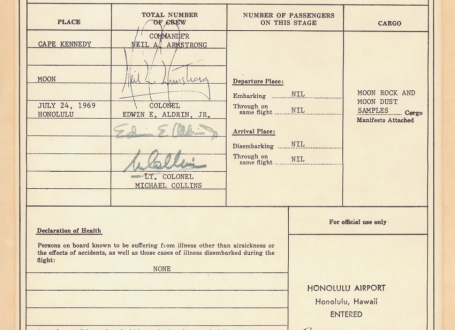 PLACE
TOTAL NUMBER
OF CREW
NUMBER OF PASSENGERS
ON THIS STAGE
CARGO
CAPE KENNEDY
COMMANDER
NEIL A. ARMSTRONG
MOON
Neil A. Armstrong
Departure Place:
Embarking NIL
Through on
same flight NIL
MOON ROCK AND
MOON DUST
SAMPLES Cargo
Manifests Attached
JULY 24, 1969
HONOLULU
COLONEL
EDWIN E. ALDRIN, JR.
Edwin E. Aldrin
Arrival Place:
Disembarking NIL
Through on
same flight NIL
M Collins
LT. COLONEL
MICHAEL COLLINS
Declaration of Health
Persons on board known to be suffering from illness other than airsickness or
the effects of accidents, as well as those cases of illness disembarked during the
flight:
NONE
For official use only
HONOLULU AIRPORT
Honolulu, Hawaii
ENTERED